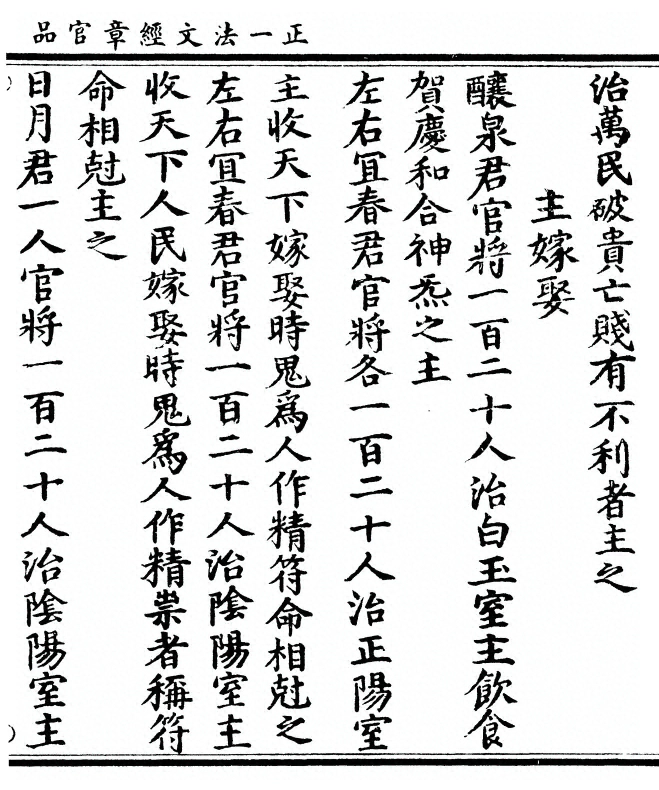 正一法文經章官品
治萬民破貴亡賤有不利者主之
主嫁娶
釀泉君官將一百二十人治白玉室主飲食
賀慶和合神炁之主
左右冝春君官將各一百二十人治正陽室
主收天下嫁娶時鬼爲人作精符命相尅之
左右冝春君官將一百二十人治陰陽室主
收天下人民嫁娶時鬼爲人作精祟者稱符
命相尅主之
日月君一人官將一百二十人治陰陽室主